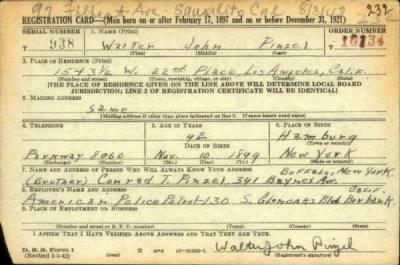 REGISTRATION CARD—(Men born on or after February 17, 1897 and on or before December 31, 1921)
SERIAL NUMBER 1. NAME (Print) ORDER NUMBER
938 Walter John Pinzel
(First) (Middle) (Last)
2. PLACE OF RESIDENCE (Print)
1543½ W. 22nd Place, Los Angeles, Calif.
(Number and street) (Town, township, village, or city) (County) (State)
[THE PLACE OF RESIDENCE GIVEN ON THE LINE ABOVE WILL DETERMINE LOCAL BOARD
JURISDICTION; LINE 2 OF REGISTRATION CERTIFICATE WILL BE IDENTICAL]
3. MAILING ADDRESS
Same
[Mailing address if other than place indicated on line 2. If same insert word same]
4. TELEPHONE 5. AGE IN YEARS 6. PLACE OF BIRTH
42 Hamburg
DATE OF BIRTH (Town or county)
Parkway 8960 Nov. 10 1899 New York
(Exchange) (Number) (Mo.) (Day) (Yr.) (State or country)
7. NAME AND ADDRESS OF PERSON WHO WILL ALWAYS KNOW YOUR ADDRESS Buffalo, New York
(Brother) Conrad T. Pinzel, 341 Baynes Ave.
8. EMPLOYER'S NAME AND ADDRESS Calif.
American Police Patrol-130 S. Glenoaks Blvd Burbank
9. PLACE OF EMPLOYMENT OR BUSINESS
(Number and street or R. F. D. number) (Town) (County) (State)
I AFFIRM THAT I HAVE VERIFIED ABOVE ANSWERS AND THAT THEY ARE TRUE.
D. S. S. Form 1
(Revised 1-1-42) Walter John Pinzel